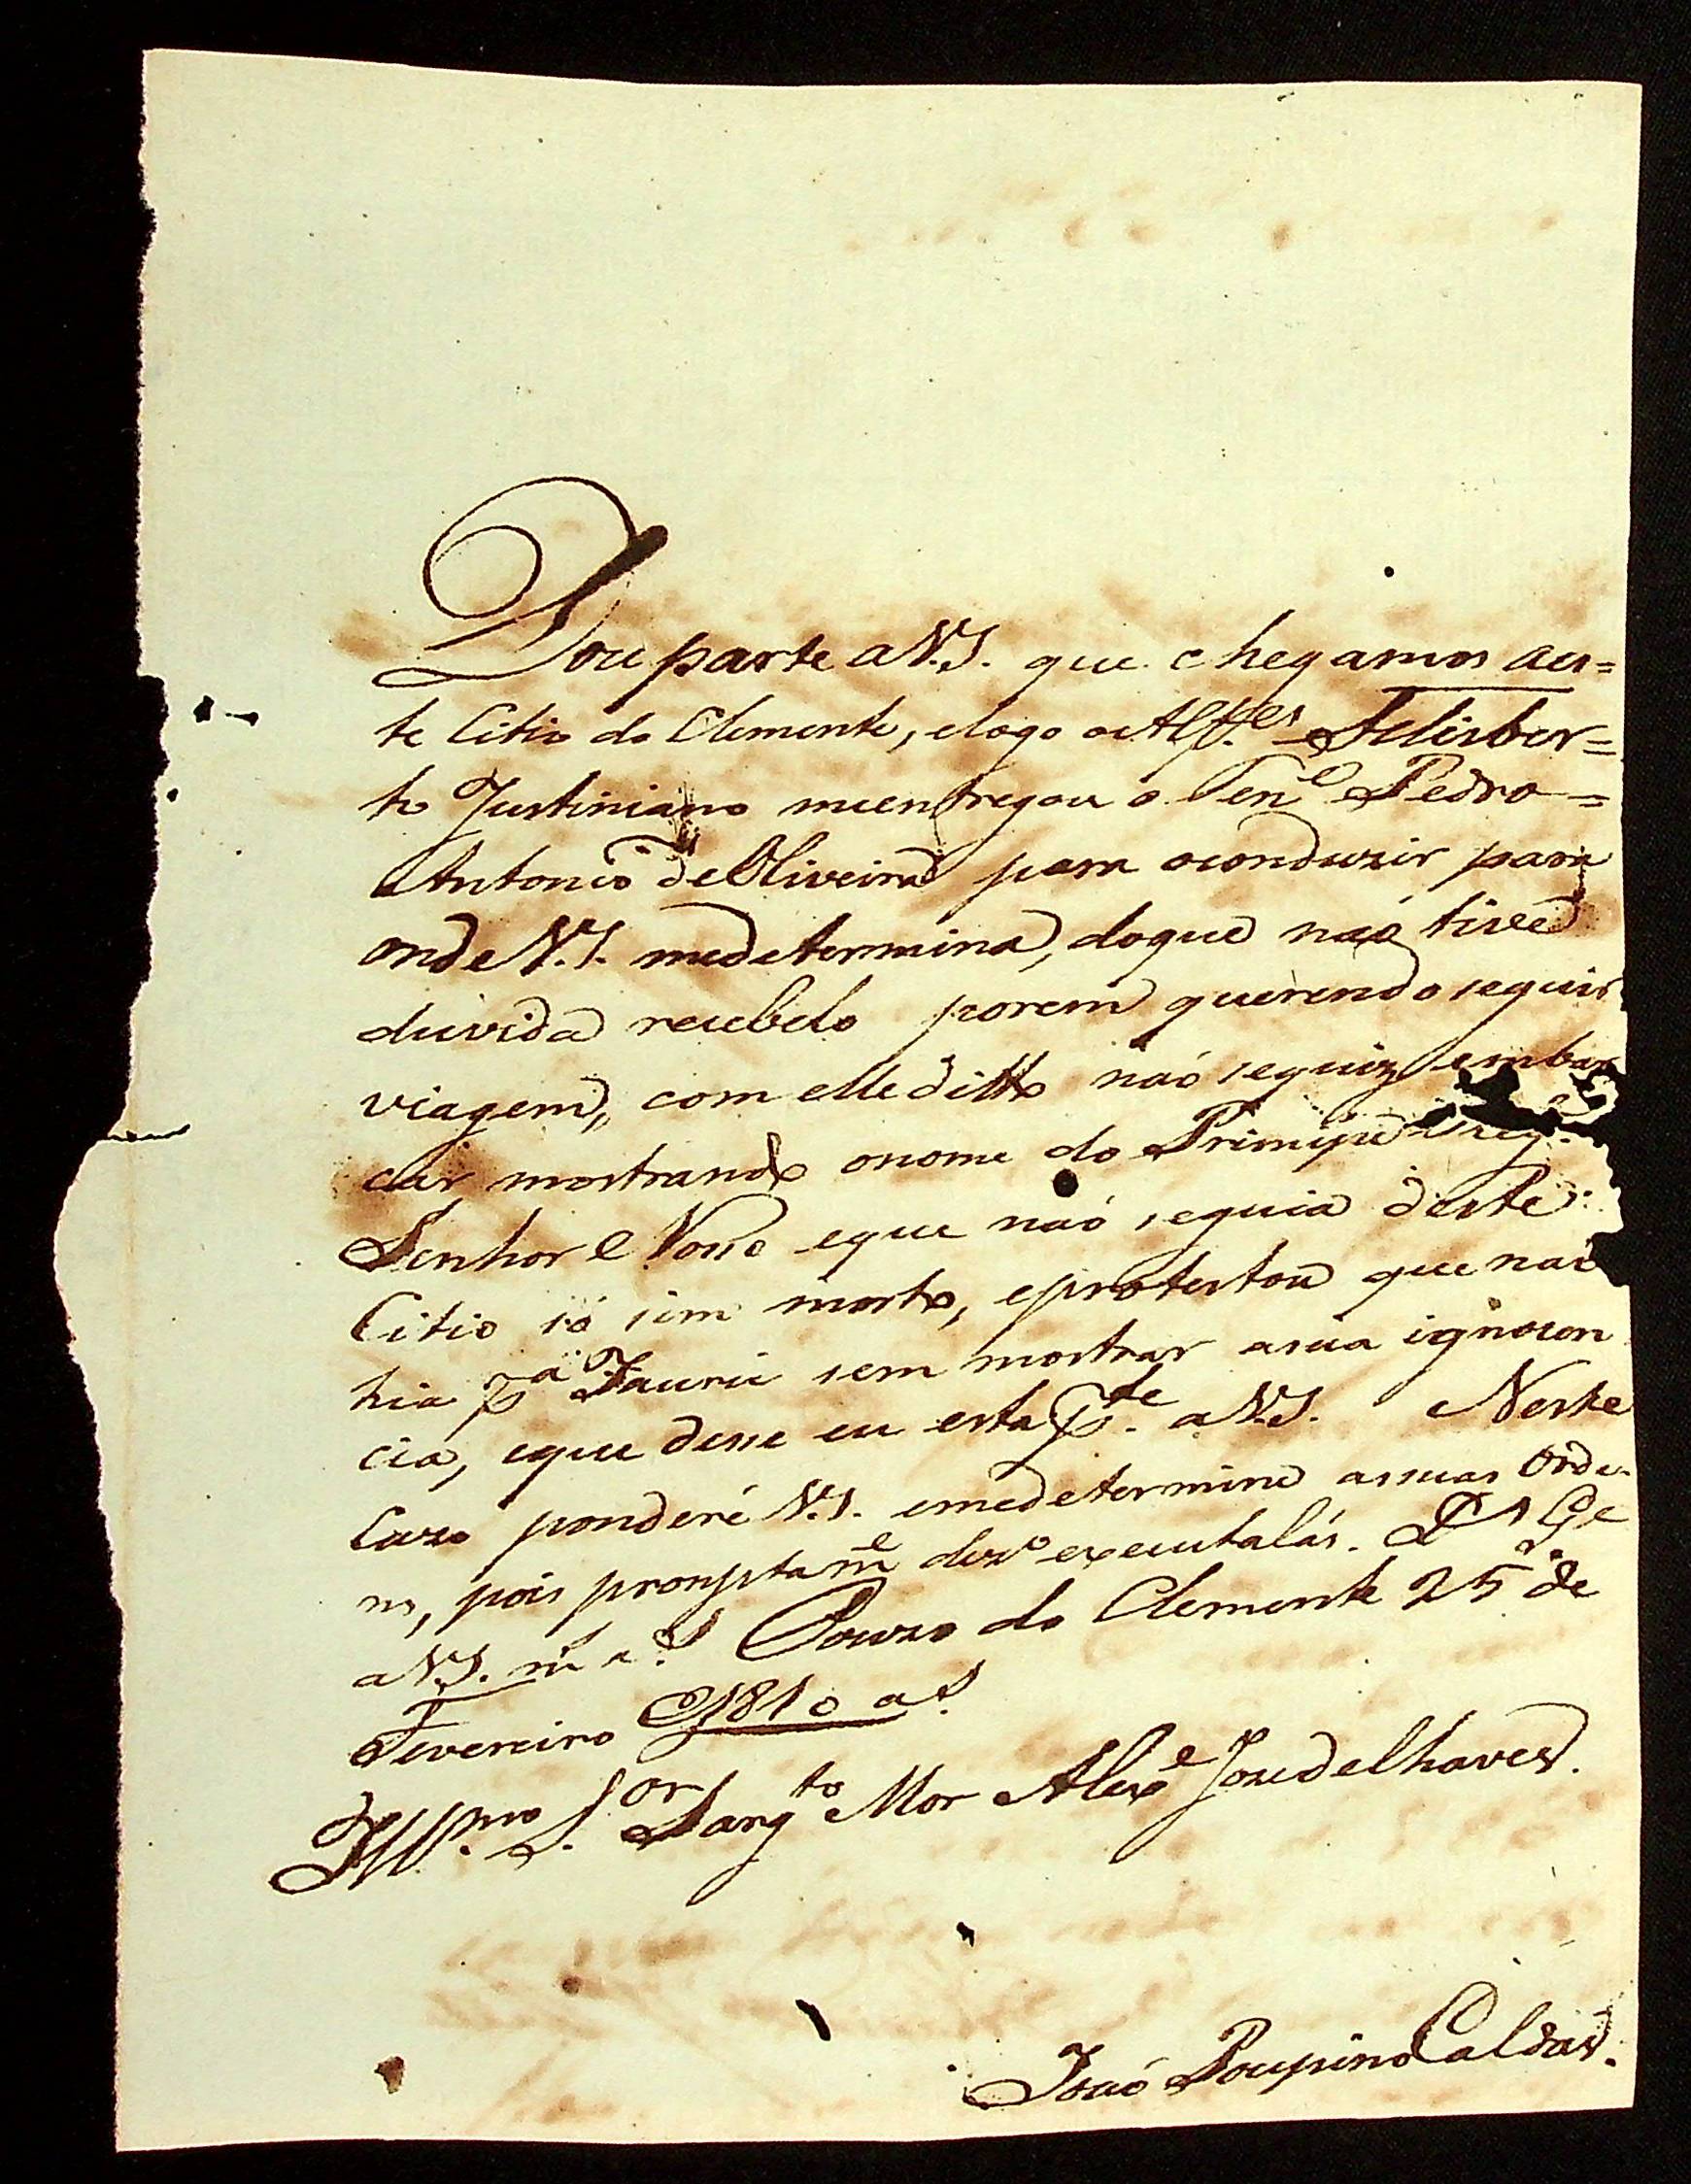 Dou parte a V.S. que chegamos aes=
te Citio do Clemente, elogo o Alf.es Felisber=
to Justiniano meentregou o Ten.e Pedro=
Antonio de Oliveira para oconduzir para
onde V.S. medetermina, doque naó tive
duvida recebelo porem querendo seguir
viagem, com elle ditto naó sequiz embar
car, mostrando onome do Principe reg.
Senhor e Nosso eque naó seguia deste
Citio só sim morto, eprotestou que naó
hia p.a Jauru sem mostrar asua ignocen
cia, eque desse eu esta p.te a V.S. Neste
Cazo ponderé V.S. emedetermine assuas Orde
ns, pois promptam.e dez.o executalás. D.s G.e
a V.S. m.s a.s Pouzo do Clemente 25 de
Fevereiro 1810 a.s
Ill.mo S.or Sarg.to Mor Alex.e Joze deChaves.
Joaó Poupino Caldas.